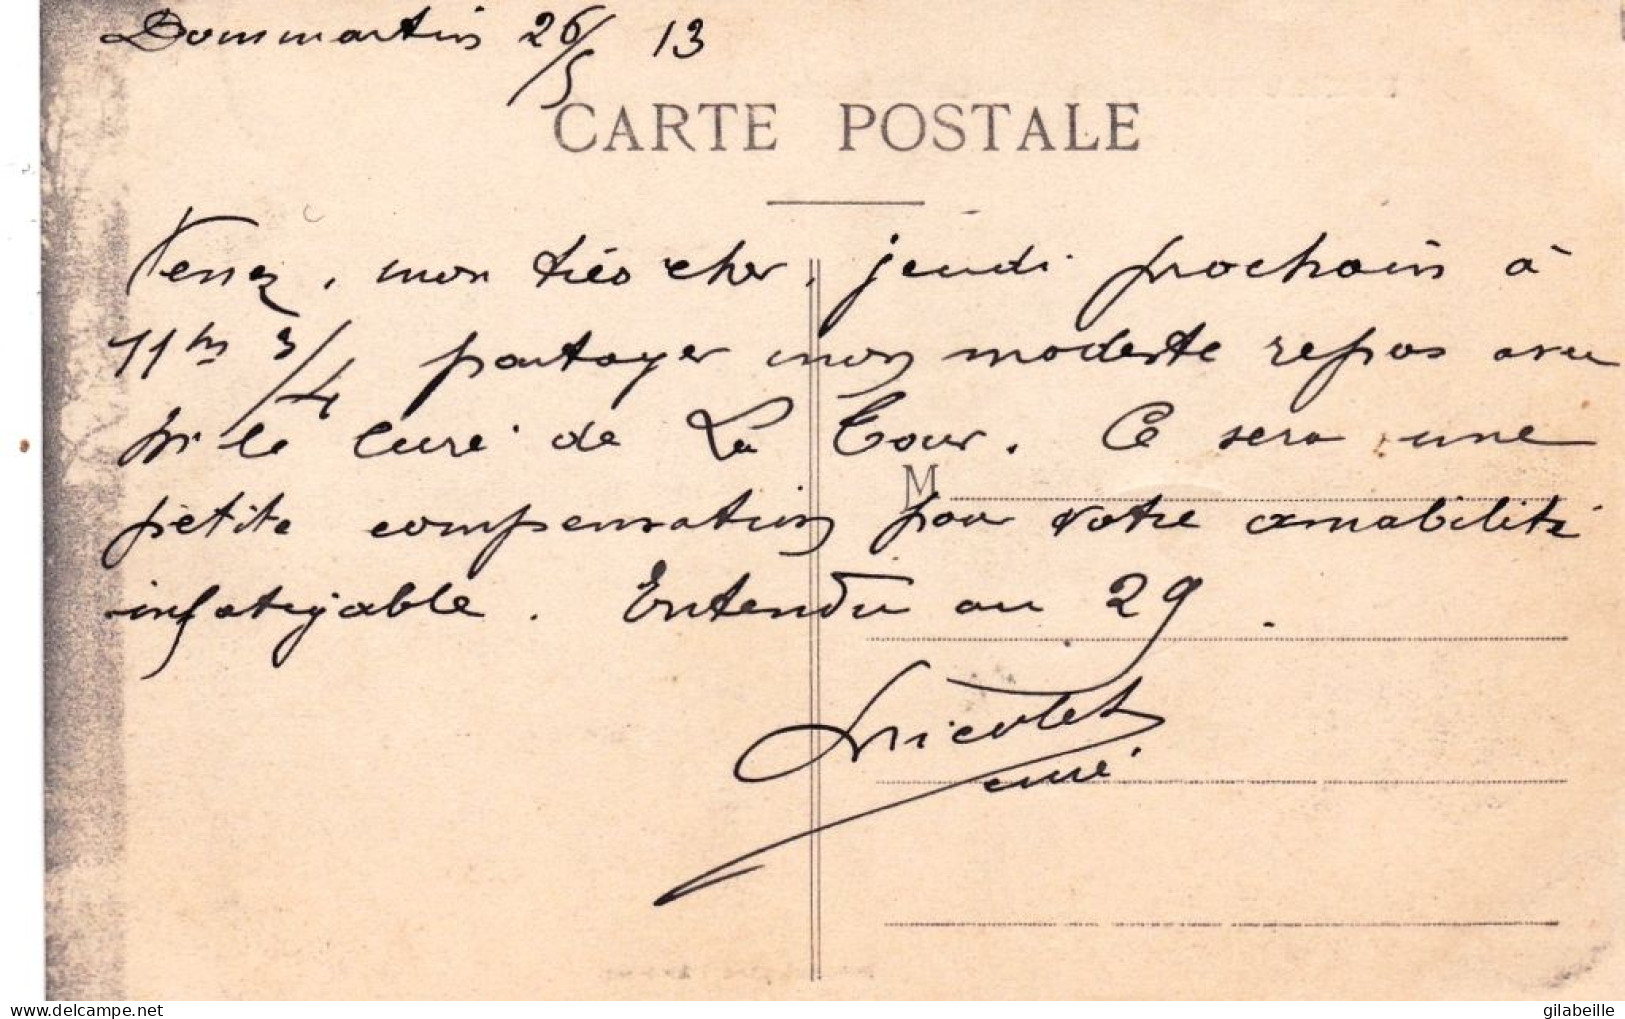 Dommartin 26/5 13
CARTE POSTALE
Venez, mon très cher, jeudi prochain à
11hrs 3/4 partager mon modeste repas avec
Mr le Curé de La Tour. Ce sera une
M
petite compensation pour votre amabilité
infatigable. Entendu au 29.
Nicolet
curé
gilabeille